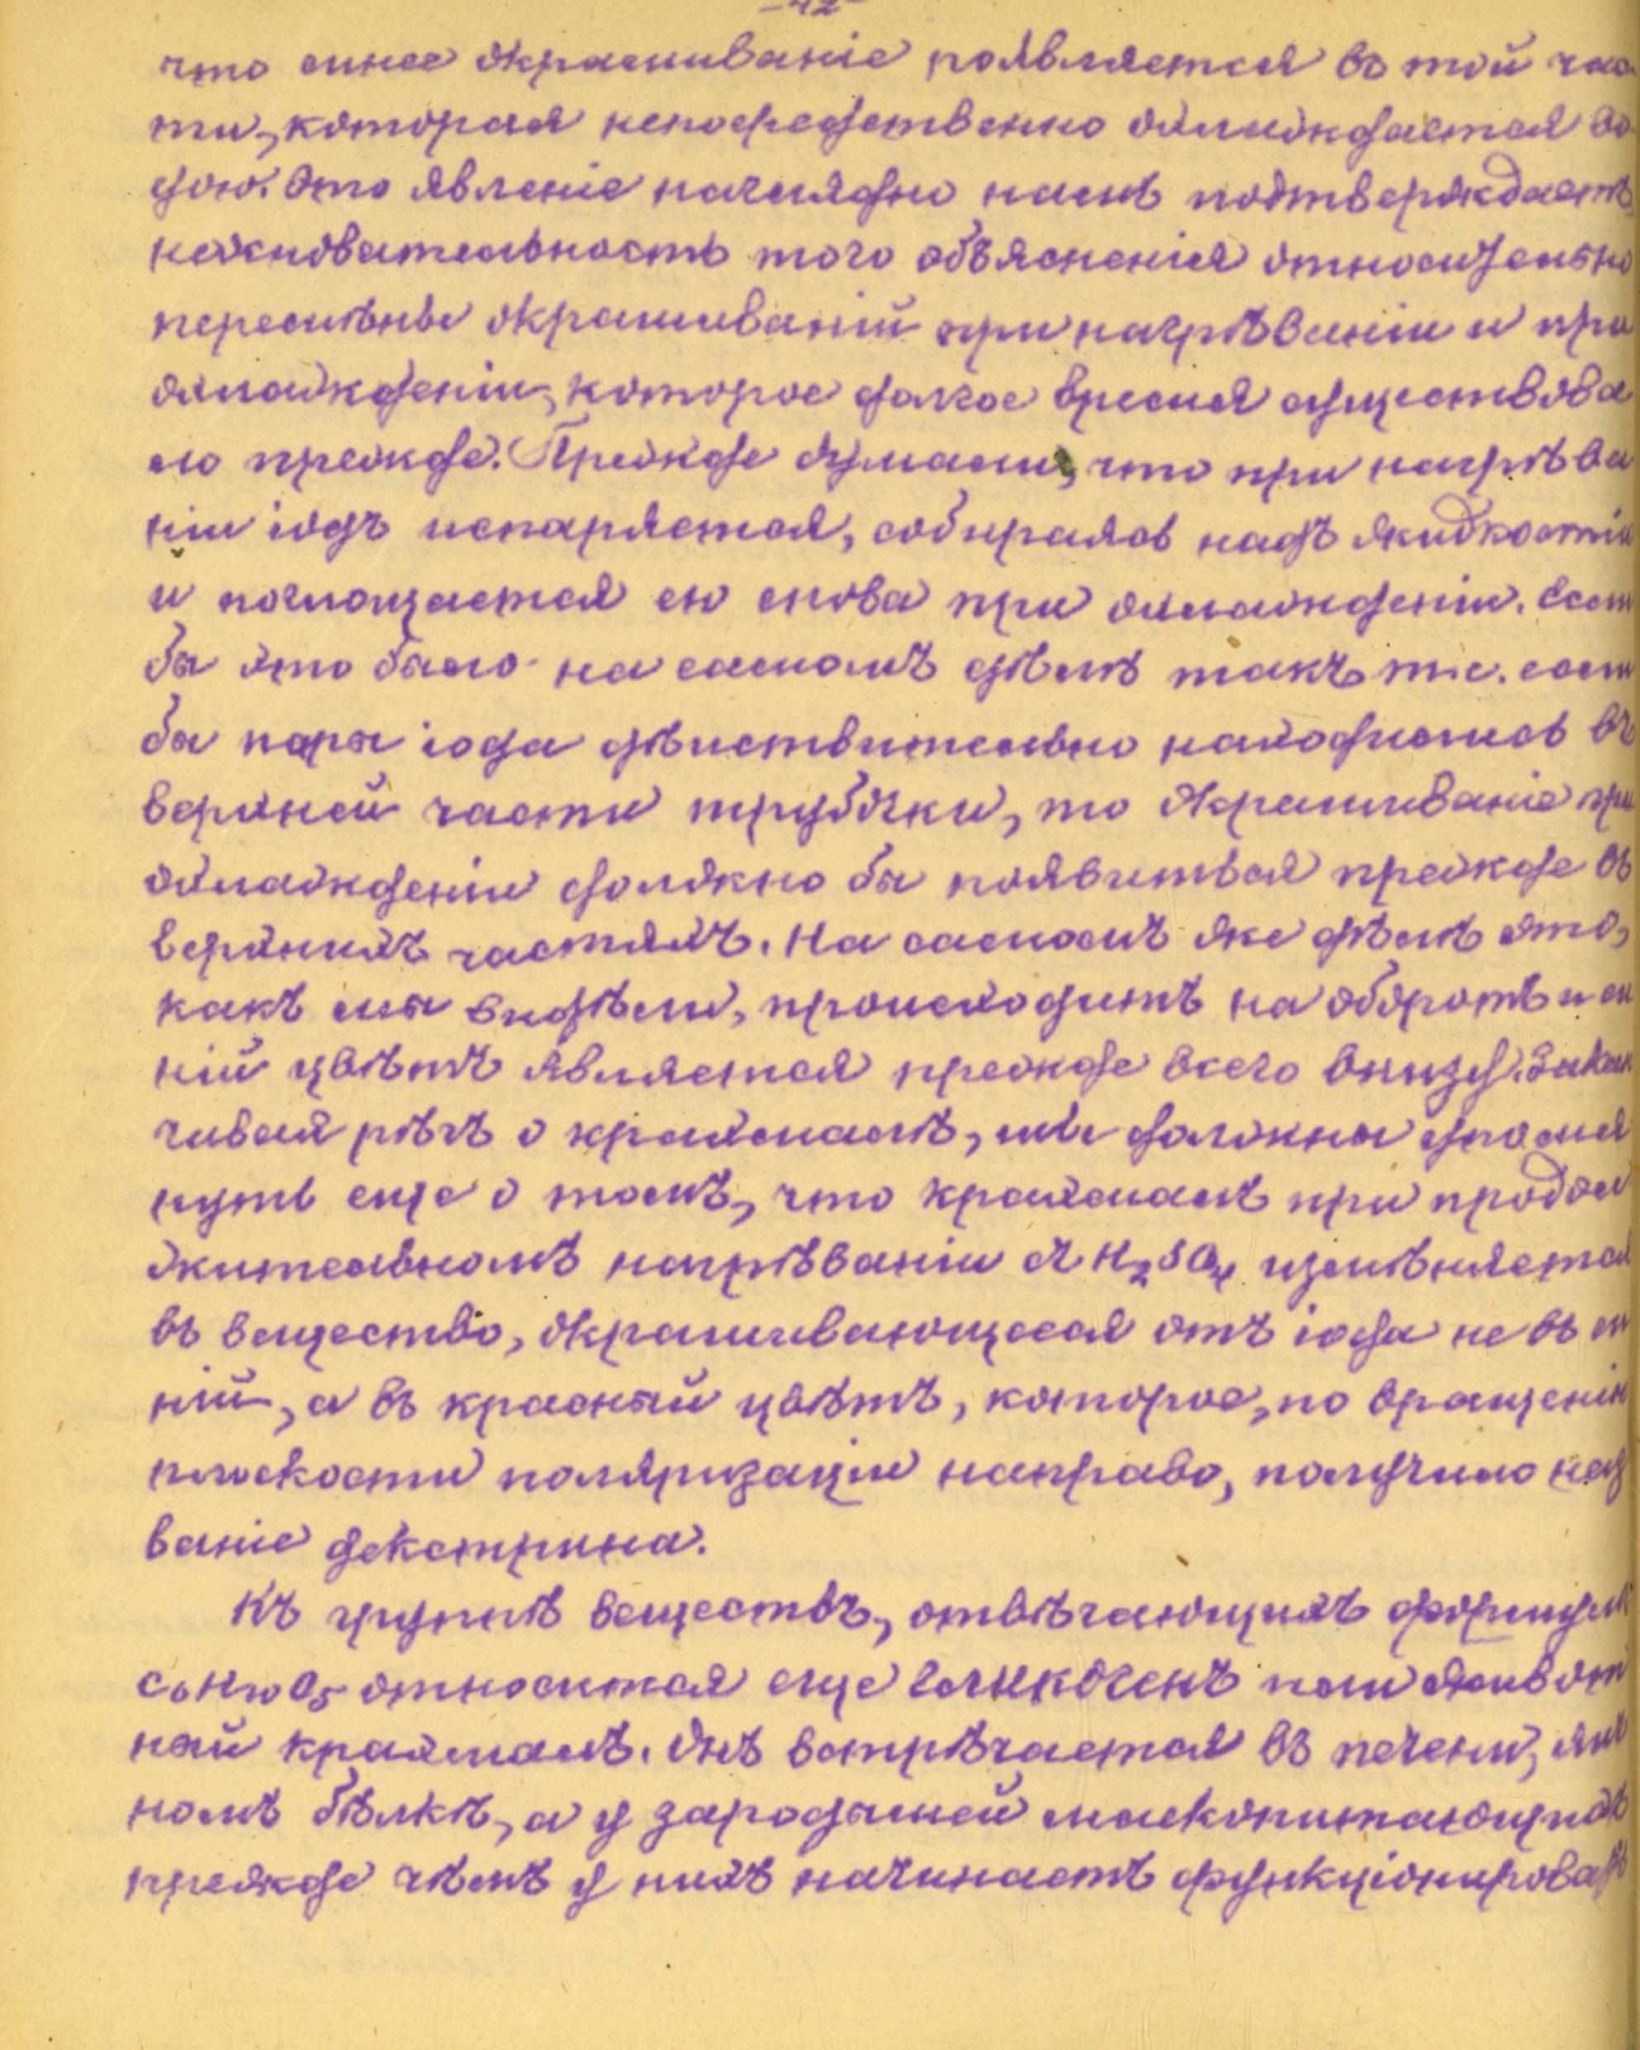 -42-
что синее окрашиваніе появляется въ той час
ти, которая непосредственно охлаждается во
дою. Это явленіе наглядно намъ подтверждаетъ
неосновательность того объясненія относительно
перемѣны окрашиваній при нагрѣваніи и при
охлажденіи, которое долгое время существова
ло прежде. Прежде думали, что при нагрѣва
ніи іодъ испаряется, собираясь надъ жидкостью
и поглощается ею снова при охлажденіи. Если
бы это было на самомъ дѣлѣ такъ т.е. если
бы пары іода дѣйствительно находились въ
верхней части трубочки, то окрашиваніе при
охлажденіи должно бы появиться прежде въ
верхнихъ частяхъ. На самомъ же дѣлѣ это,
какъ мы видѣли, происходитъ на оборотъ и си
ній цвѣтъ является прежде всего внизу. Закан
чивая рѣчь о крахмалѣ, мы должны упомя
нуть еще о томъ, что крахмалъ при продол
жительномъ нагрѣваніи съ H2SO4 измѣняется
въ вещество, окрашивающееся отъ іода не въ си
ній, а въ красный цвѣтъ, которое, по вращенію
плоскости поляризаціи направо, получило наз
ваніе декстрина.
Къ группѣ веществъ, отвѣчающихъ формулѣ
C6H10O5 относится еще гликогенъ или живот
ный крахмалъ. Онъ встрѣчается въ печени, яич
номъ бѣлкѣ, а у зародышей млекопитающихъ
прежде чѣмъ у нихъ начинаетъ функціонировать